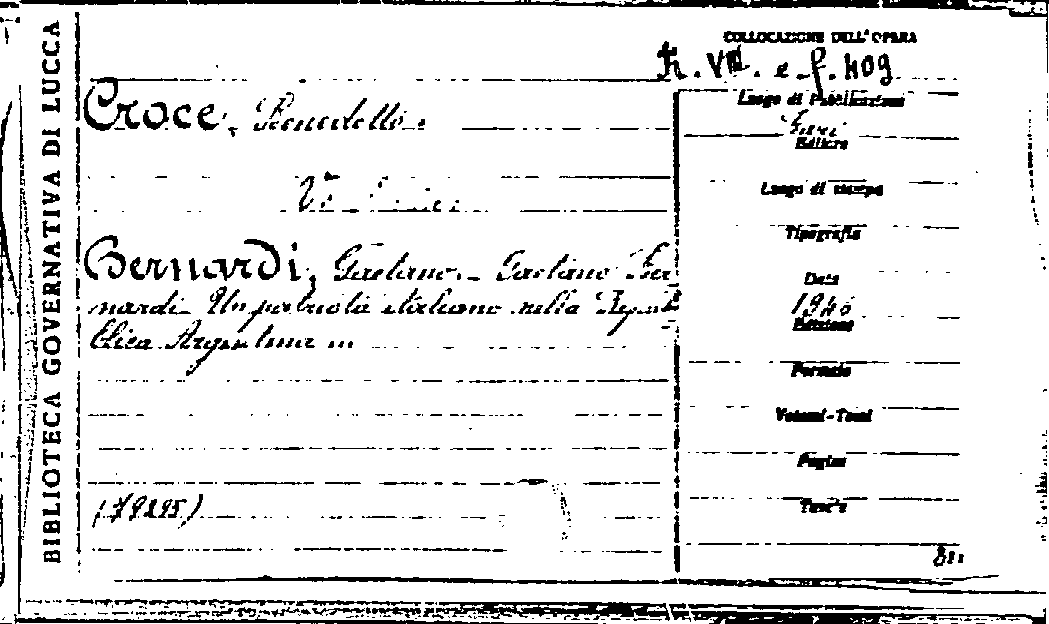 BIBLIOTECA GOVERNATIVA DI LUCCA
COLLOCAZIONE DELL'OPERA
e. f. 409
Croce, Benedetto.
Luogo di Pubblicazione
Bari
Editore
Luogo di stampa
Tipografia
Bernardi, Gaetano. - Gaetano Ber
nardi. Un patriota italiano nella Repub
blica Argentina ...
Data
1946
Edizione
Formato
Volumi-Tomi
Pagine
Tavole
(79295)